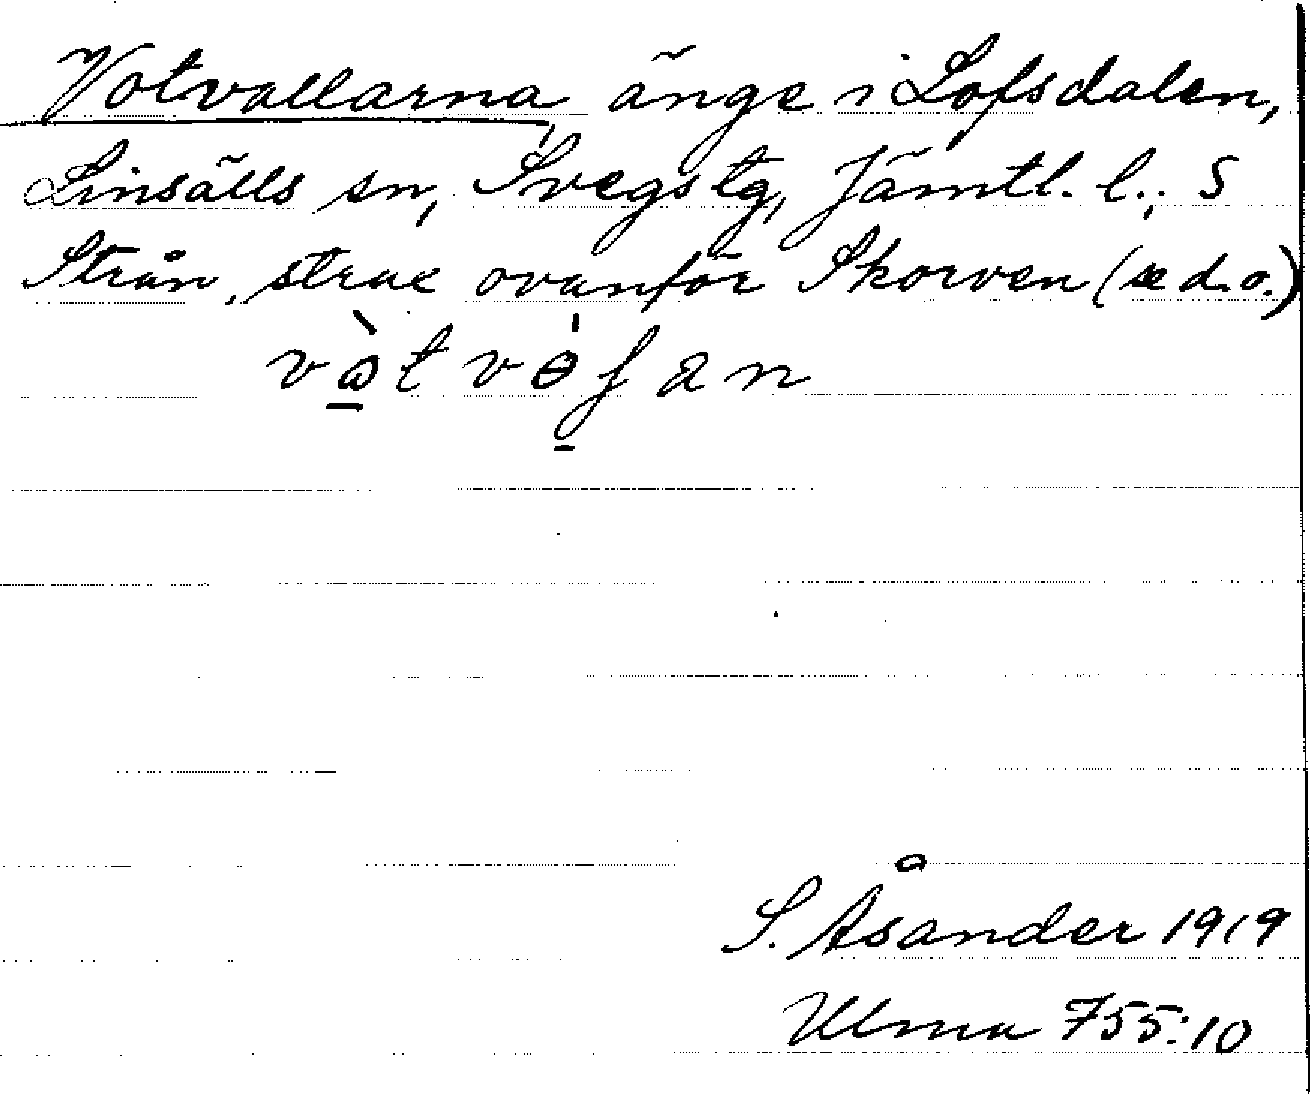 Votvallarna, änge i Lofsdalen,
Linsälls sn, Svegs tg, Jämtl. l.; S
Strån, strax ovanför Skorven (se d.o.)
vɷ̀tvɵ̀ʃan
S. Åsander 1919
Ulma 755:10